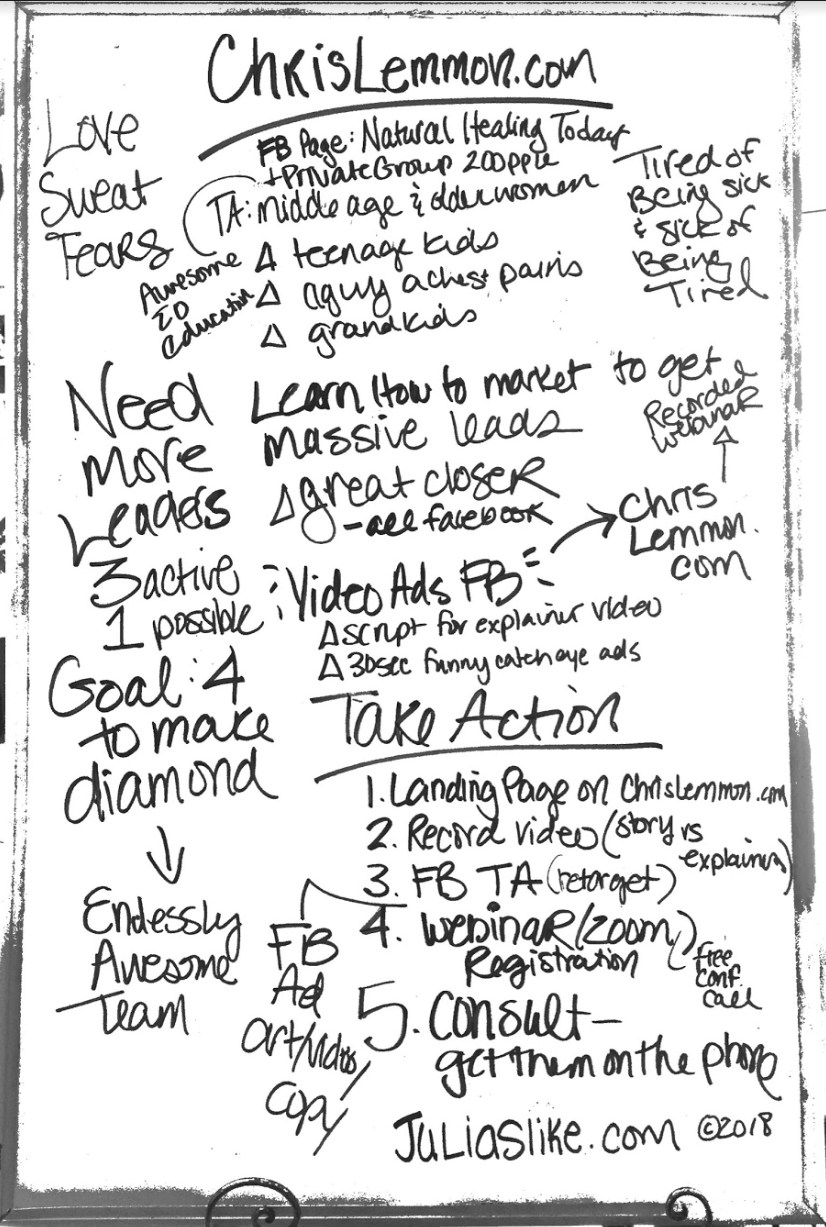 ChrisLemmon.com
Love
Sweat
Tears
FB Page: Natural Healing Today
+ Private Group 200pple
TA: middle age & older women
Δ teenage kids
Δ a guy a chest pains
Δ grandkids
Awesome
EO
Education
Tired of
Being sick
& sick of
Being
Tired
Need
more
Leaders
3 active
1 possible
Goal: 4
to make
diamond
Endlessly
Awesome
Team
Learn How to market to get
massive leads
Δ great closer
- all facebook
Video Ads FB
Δ script for explainer video
Δ 30sec funny catch eye ads
Chris
Lemmon.
com
Recorded
webinar
Take Action
1. Landing Page on ChrisLemmon.com
2. Record video (story vs
explainer)
3. FB TA (retarget)
4. Webinar (zoom)
Registration
free
conf.
call
5. Consult -
get them on the phone
FB
Ad
art/video/
copy
Juliaslike.com ©2018